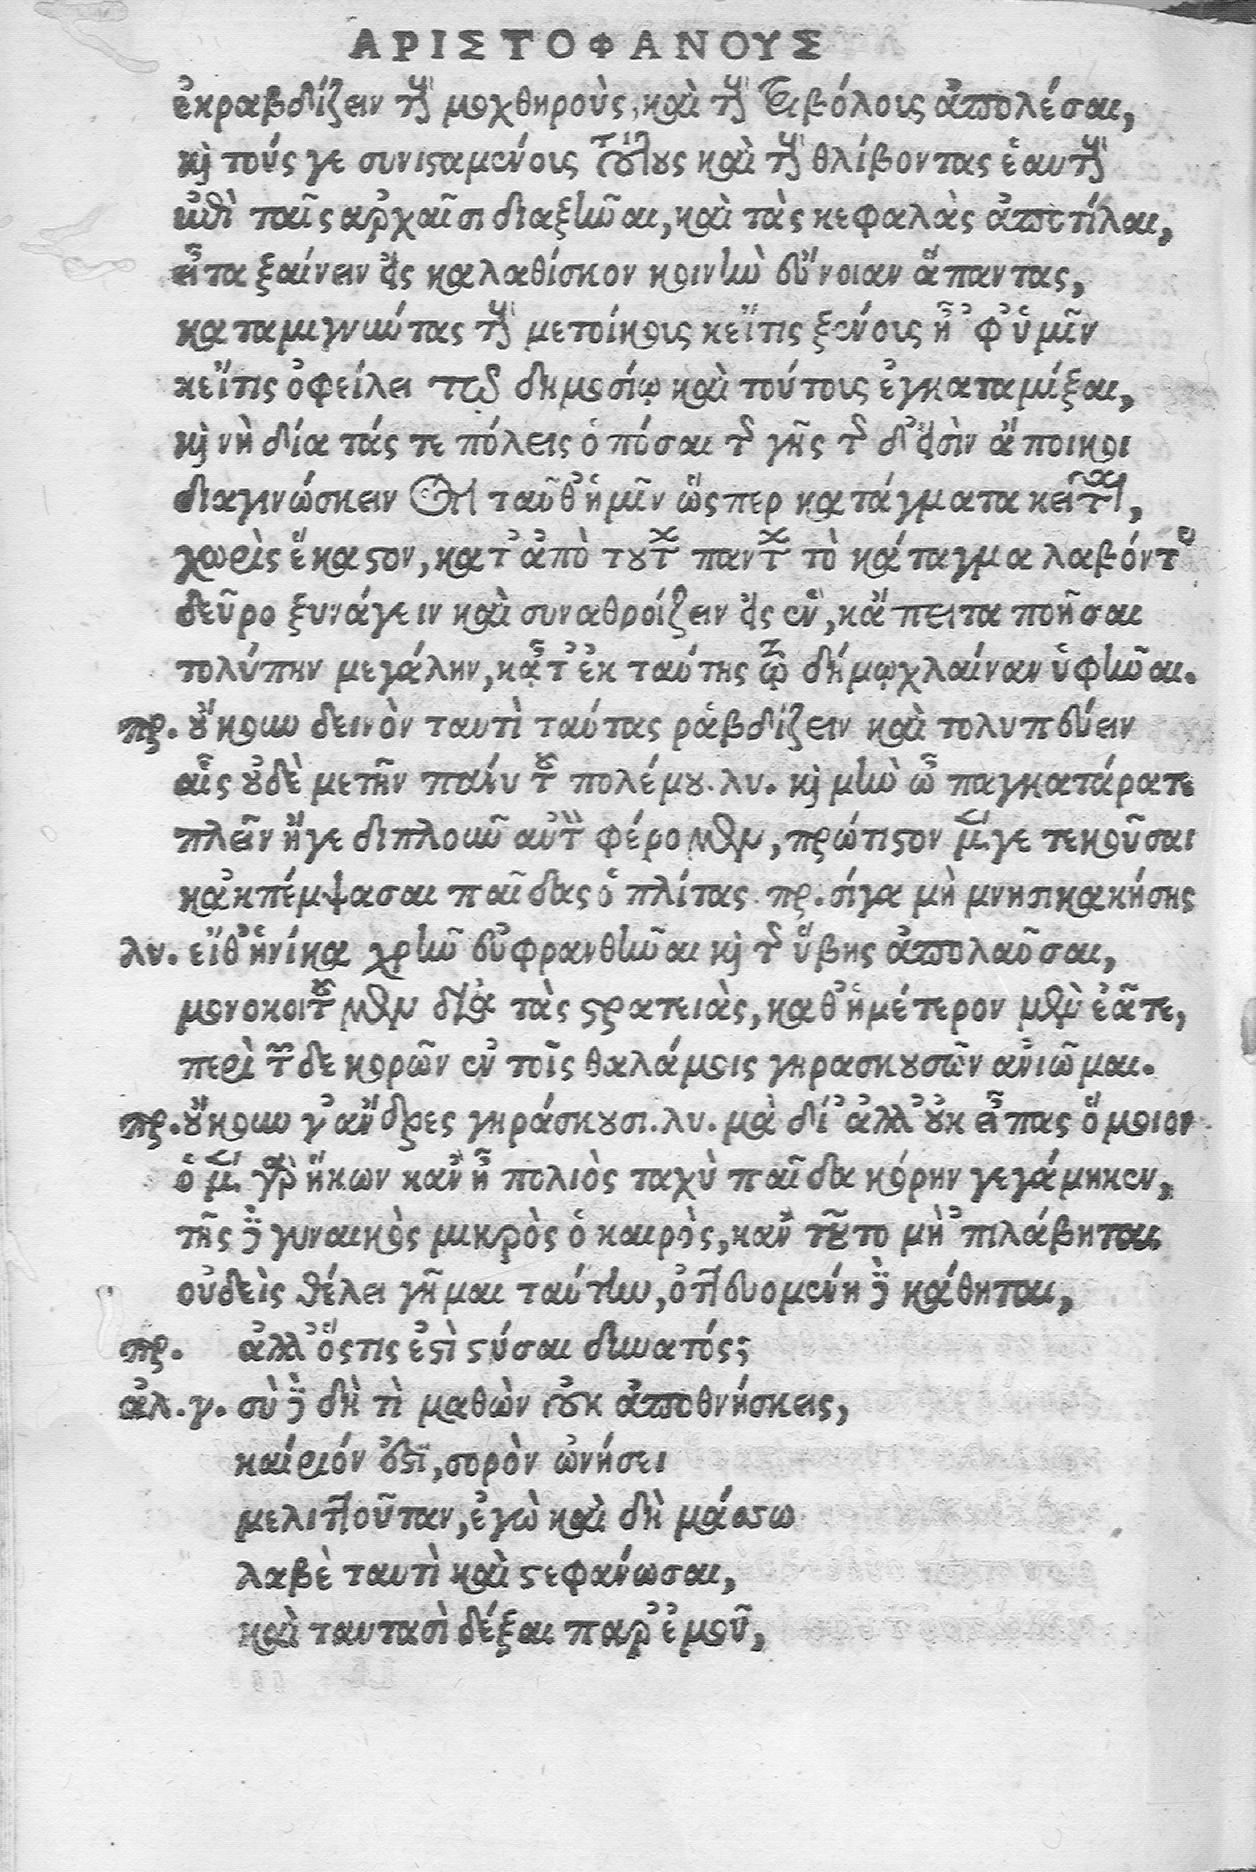 ΑΡΙΣΤΟΦΑΝΟΥΣ
ἐκραβδίζειν τοὺς μοχθηροὺς, καὶ τοὺς τριβόλους ἀπολέσαι,
καὶ τούς γε συνισταμένους τούτους καὶ τοὺς θλίβοντας ἑαυτοὺς
ἐπὶ ταῖς ἀρχαῖσι διαξῆναι, καὶ τὰς κεφαλὰς ἀποτίλαι,
εἶτα ξαίνειν εἰς καλαθίσκον κοινὴν εὔνοιαν ἅπαντας,
καταμιγνύτας τοὺς μετοίκους κεἴτις ξένος ἢ φ ὑμῖν
κεἴτις ὀφείλει τῷ δημοσίῳ καὶ τούτους ἐγκαταμίξαι,
καὶ νὴ δία τάς τε πόλεις ὁπόσαι τῆς γῆς τῆς δ᾽ εἰσὶν ἄποικοι
διαγινώσκειν ὅτι ταῦθ᾽ ἡμῖν ὥσπερ κατάγματα κεῖται,
χωρὶς ἕκαστον, κατ᾽ ἀπὸ τούτων πάντων τὸ κάταγμα λαβόντας
δεῦρο ξυνάγειν καὶ συναθροίζειν εἰς ἓν, κἄπειτα ποῆσαι
τολύπην μεγάλην, κᾆτ᾽ ἐκ ταύτης τῷ δήμῳ χλαίναν ὑφῆναι.
πρ. οὔκουν δεινὸν ταυτὶ ταύτας ῥάβδίζειν καὶ τολυπεύειν
αἷς οὐδὲ μετῆν πάνυ τοῦ πολέμου. λυ. καὶ μὴν ὦ παγκατάρατε
πλεῖν ἤγε διπλοῦν αὐτὸν φέρομεν, πρώτιστον μέν γε τεκοῦσαι
κἀκπέμψασαι παῖδας ὁπλίτας. πρ. σίγα μὴ μνησικακήσης
λυ. εἴθ᾽ ἡνίκα χρῆν εὐφρανθῆναι καὶ τῆς ἥβης ἀπολαῦσαι,
μονοκοιτοῦμεν διὰ τὰς στρατειὰς, καθ᾽ ἡμέτερον μὲν ἐᾶτε,
περὶ τῶν δε κορῶν ἐν τοῖς θαλάμοις γηρασκουσῶν ἀνιῶμαι.
πρ. οὔκουν γ᾽ ἄνδρες γηράσκουσι. λυ. μὰ δί᾽ ἀλλ᾽ οὐκ εἶπας ὅμοιον
ὁ μέν γὰρ ἥκων κἂν ᾖ πολιὸς ταχὺ παῖδα κόρην γεγάμηκεν,
τῆς δὲ γυναικὸς μικρὸς ὁ καιρὸς, κἂν τοῦτο μὴ ᾽πιλάβηται
οὐδεὶς θέλει γῆμαι ταύτην, ὀττευομένη δὲ κάθηται,
πρ. ἀλλ᾽ ὅστις ἐστὶ στύσαι δυνατός;
ἀλ. γ. σὺ δὲ δὴ τὶ μαθὼν οὐκ ἀποθνήσκεις,
καίριόν ἐστι, σορὸν ὠνήσει
μελιττοῦταν, ἐγὼ καὶ δὴ μάξω
λαβὲ ταυτὶ καὶ στεφάνωσαι,
καὶ ταυτασὶ δέξαι παρ᾽ ἐμοῦ,